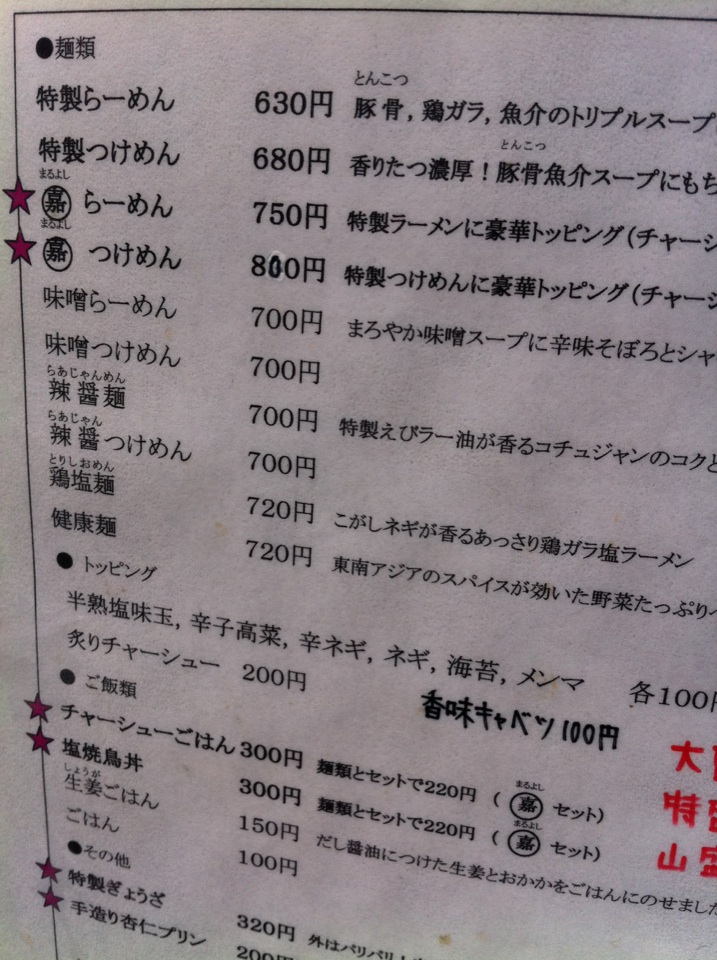 ●麺類
特製らーめん 630円 豚骨,鶏ガラ,魚介のトリプルスープ
とんこつ
特製つけめん 680円 香りたつ濃厚！豚骨魚介スープにもち
とんこつ
★ 嘉 らーめん 750円 特製ラーメンに豪華トッピング(チャーシ
まるよし
★ 嘉 つけめん 800円 特製つけめんに豪華トッピング(チャーシ
まるよし
味噌らーめん 700円 まろやか味噌スープに辛味そぼろとシャ
味噌つけめん 700円
らあじゃんめん
辣醤麺 700円 特製えびラー油が香るコチュジャンのコクと
らあじゃん
辣醤つけめん 700円
とりしおめん
鶏塩麺 720円 こがしネギが香るあっさり鶏ガラ塩ラーメン
健康麺 720円 東南アジアのスパイスが効いた野菜たっぷり
● トッピング
半熟塩味玉,辛子高菜,辛ネギ,ネギ,海苔,メンマ 各100円
炙りチャーシュー 200円
香味キャベツ100円
● ご飯類
★ チャーシューごはん 300円 麺類とセットで220円 (嘉セット)
まるよし
★ 塩焼鳥丼 300円 麺類とセットで220円 (嘉セット)
まるよし
しょうが
生姜ごはん 150円 だし醤油につけた生姜とおかかをごはんにのせました
ごはん 100円
大
特
山盛
●その他
★ 特製ぎょうざ 320円 外はパリパリ！
★ 手造り杏仁プリン 200円